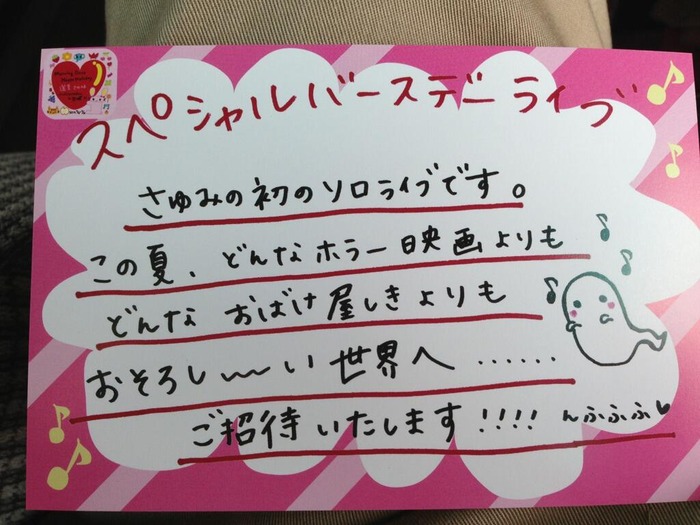 スペシャルバースデーライブ
さゆみの初のソロライブです。
この夏、どんなホラー映画よりも
どんなおばけ屋しきよりも
おそろし〜い世界へ……
ご招待いたします!!!! んふふふ♥